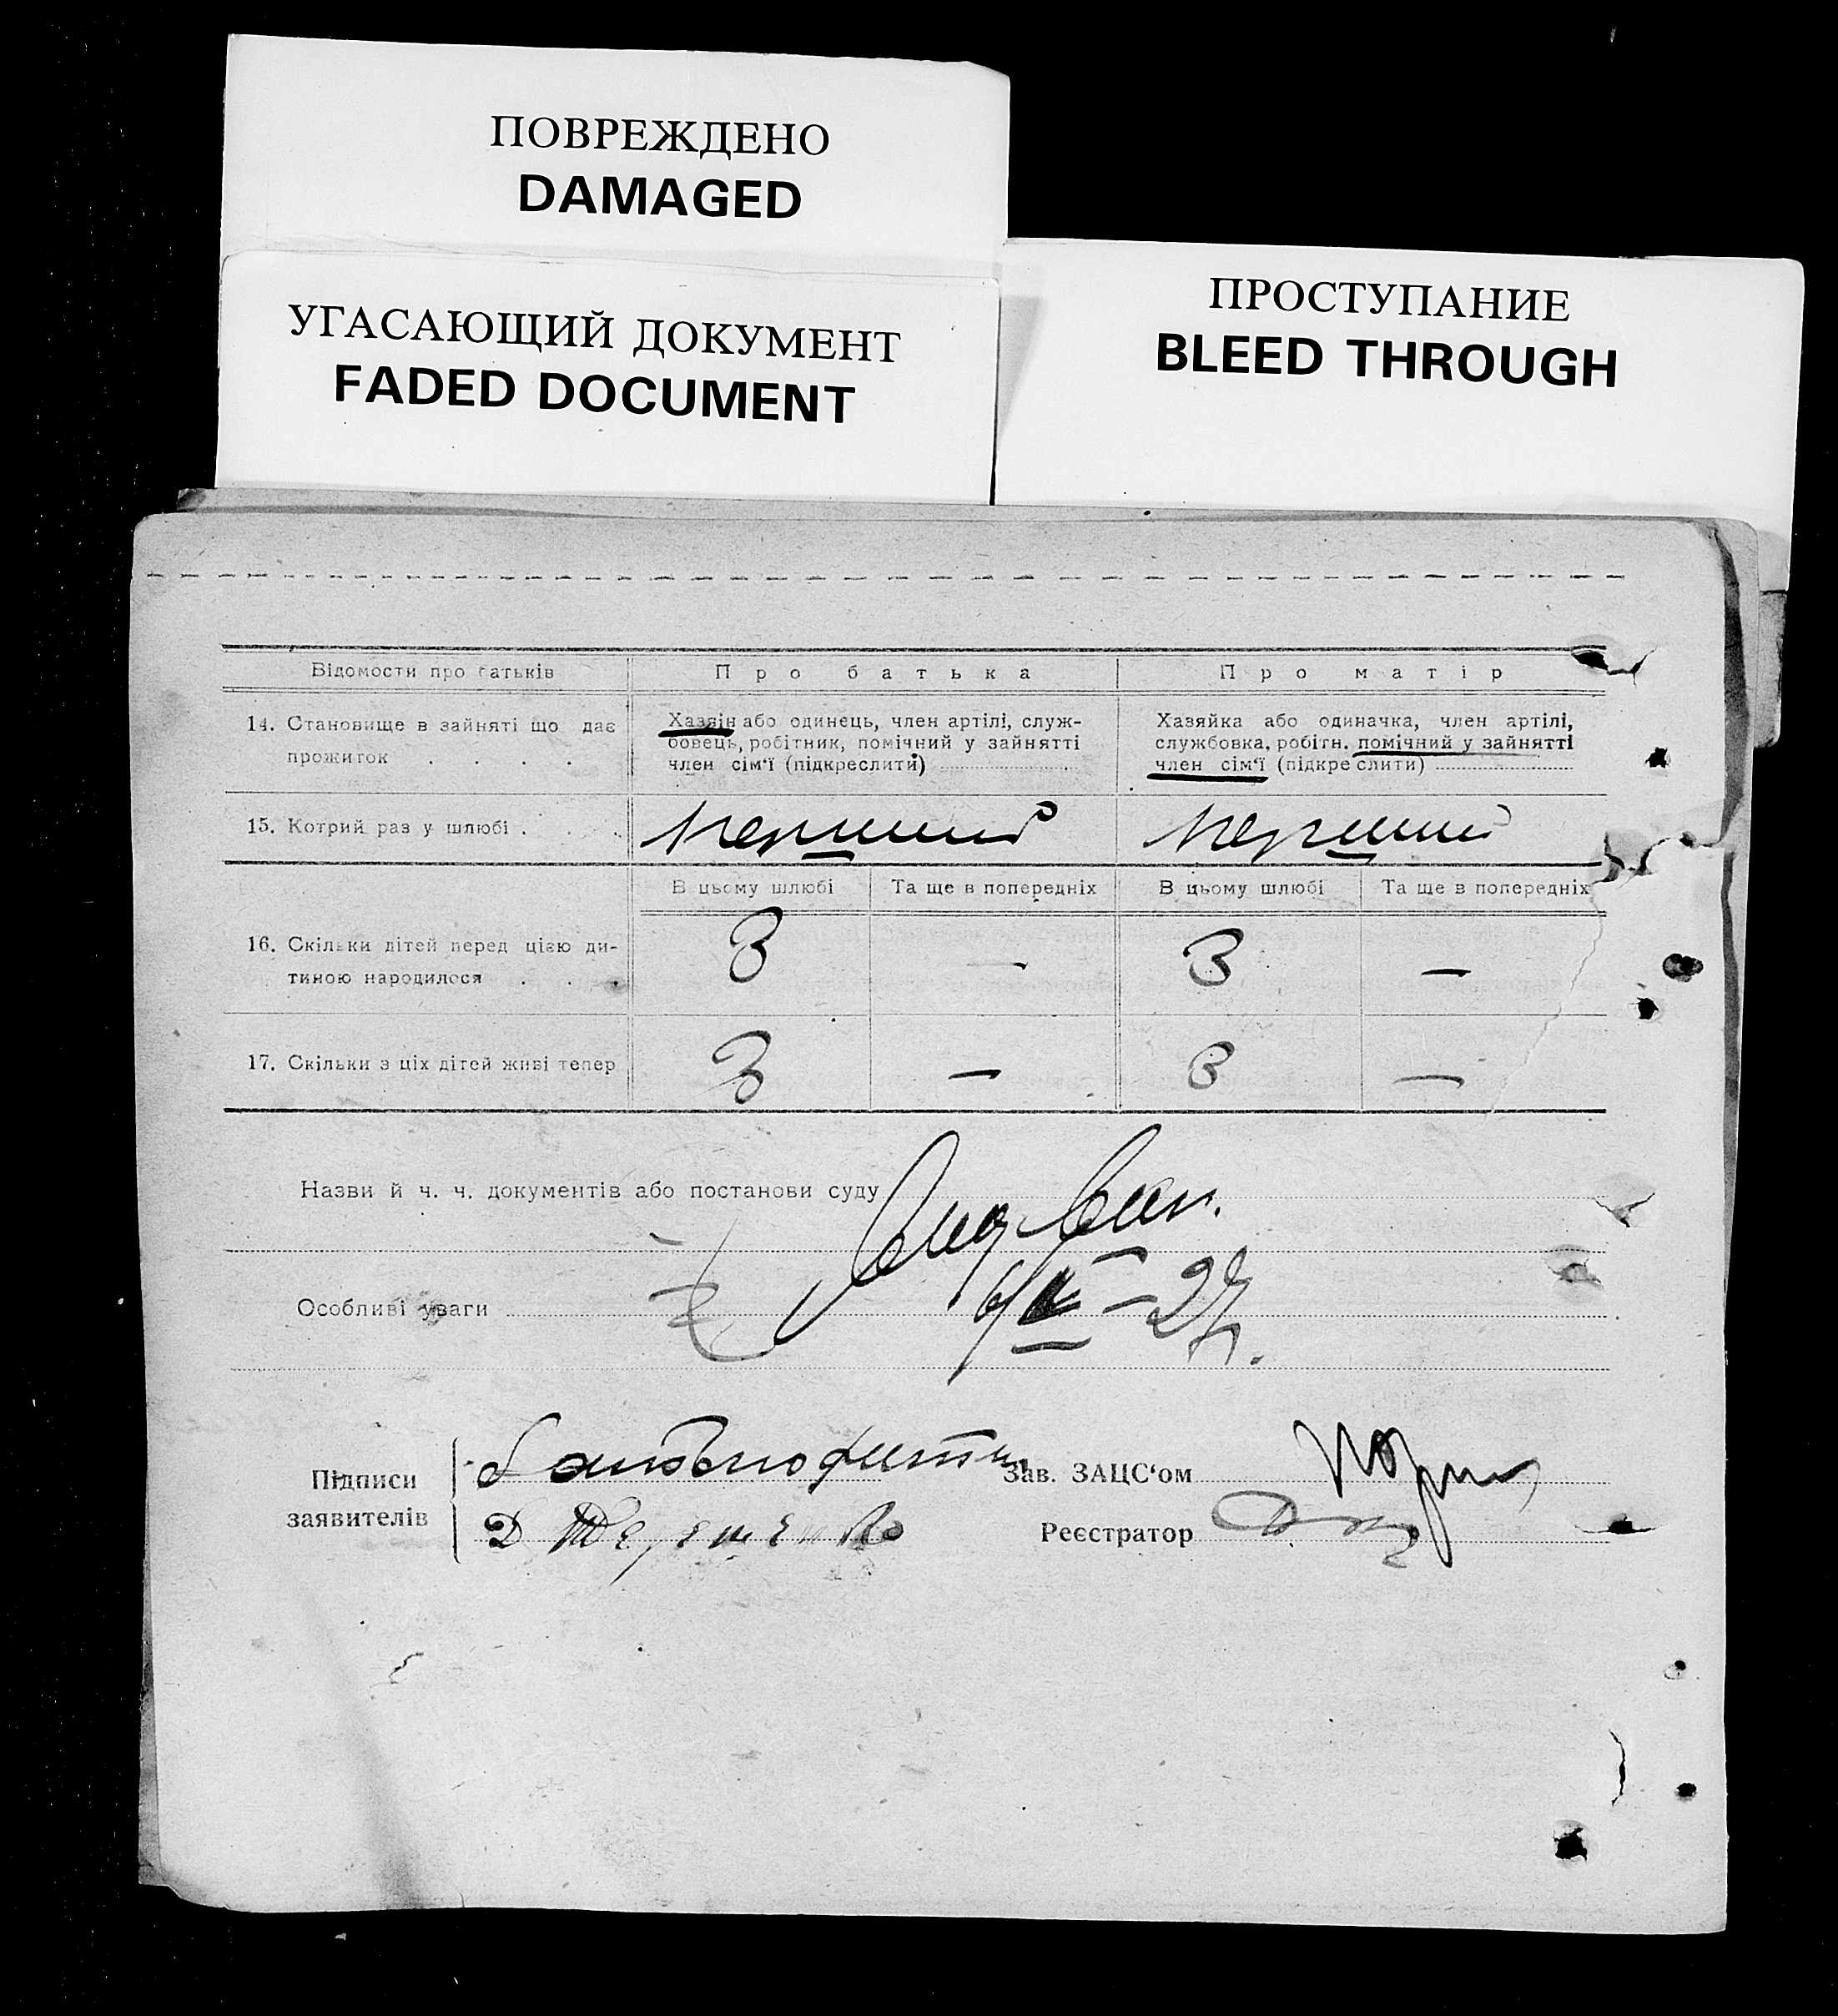 ПОВРЕЖДЕНО
DAMAGED
УГАСАЮЩИЙ ДОКУМЕНТ
FADED DOCUMENT
ПРОСТУПАНИЕ
BLEED THROUGH
Відомости про батьків
Про батька
Про матір
14. Становище в зайняті що дає
прожиток . . . .
Хазяін або одинець, член артілі, служ-
бовець, робітник, помічний у зайнятті
член сім'ї (підкреслити)
Хазяйка або одиначка, член артілі,
службовка, робітн. помічний у зайнятті
член сім'ї (підкреслити)
15. Котрий раз у шлюбі . . . .
перший
перший
В цьому шлюбі
Та ще в попередніх
В цьому шлюбі
Та ще в попередніх
16. Скільки дітей перед цією ди-
тиною народилося . . .
3
—
3
—
17. Скільки з ціх дітей живі тепер
3
—
3
—
Назви й ч. ч. документів або постанови суду
Особливі уваги
Підписи
заявителів
Зав. ЗАЦС'ом
Реєстратор